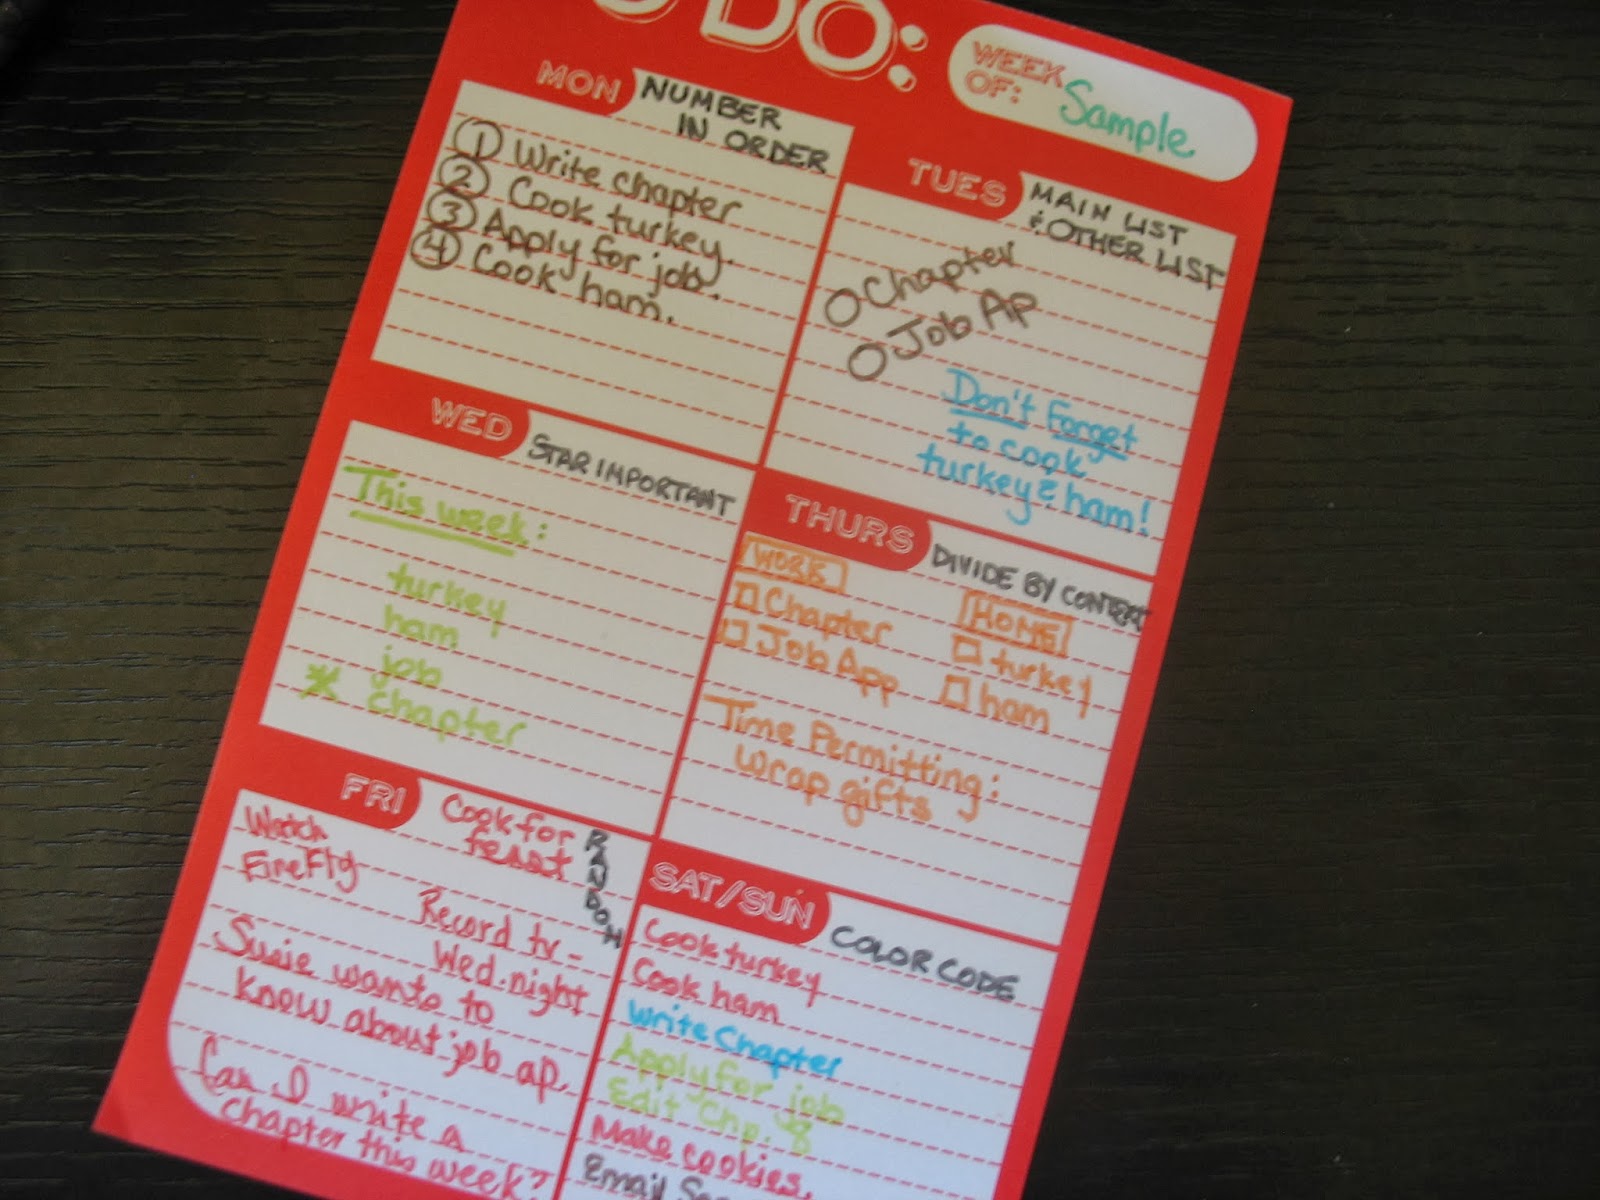 O DO:
WEEK OF: Sample
MON
NUMBER
IN ORDER
① Write chapter
② Cook turkey.
③ Apply for job.
④ Cook ham.
TUES
MAIN LIST
& OTHER LIST
Chapter
Job Ap
Don't Forget
to cook
turkey & ham!
WED
STAR IMPORTANT
This week:
turkey
ham
job
* chapter
THURS
DIVIDE BY CONTEXT
WORK
Chapter
Job App
HOME
turkey
ham
Time Permitting:
wrap gifts
FRI
RANDOM
Cook for
feast
Watch
FireFly
Record tv -
Wed. night
Susie wants to
know about job ap.
Can I write a
chapter this week?
SAT/SUN
COLOR CODE
Cook turkey
Cook ham
Write Chapter
Apply for job
Edit Chp. 8
Make cookies.
Email